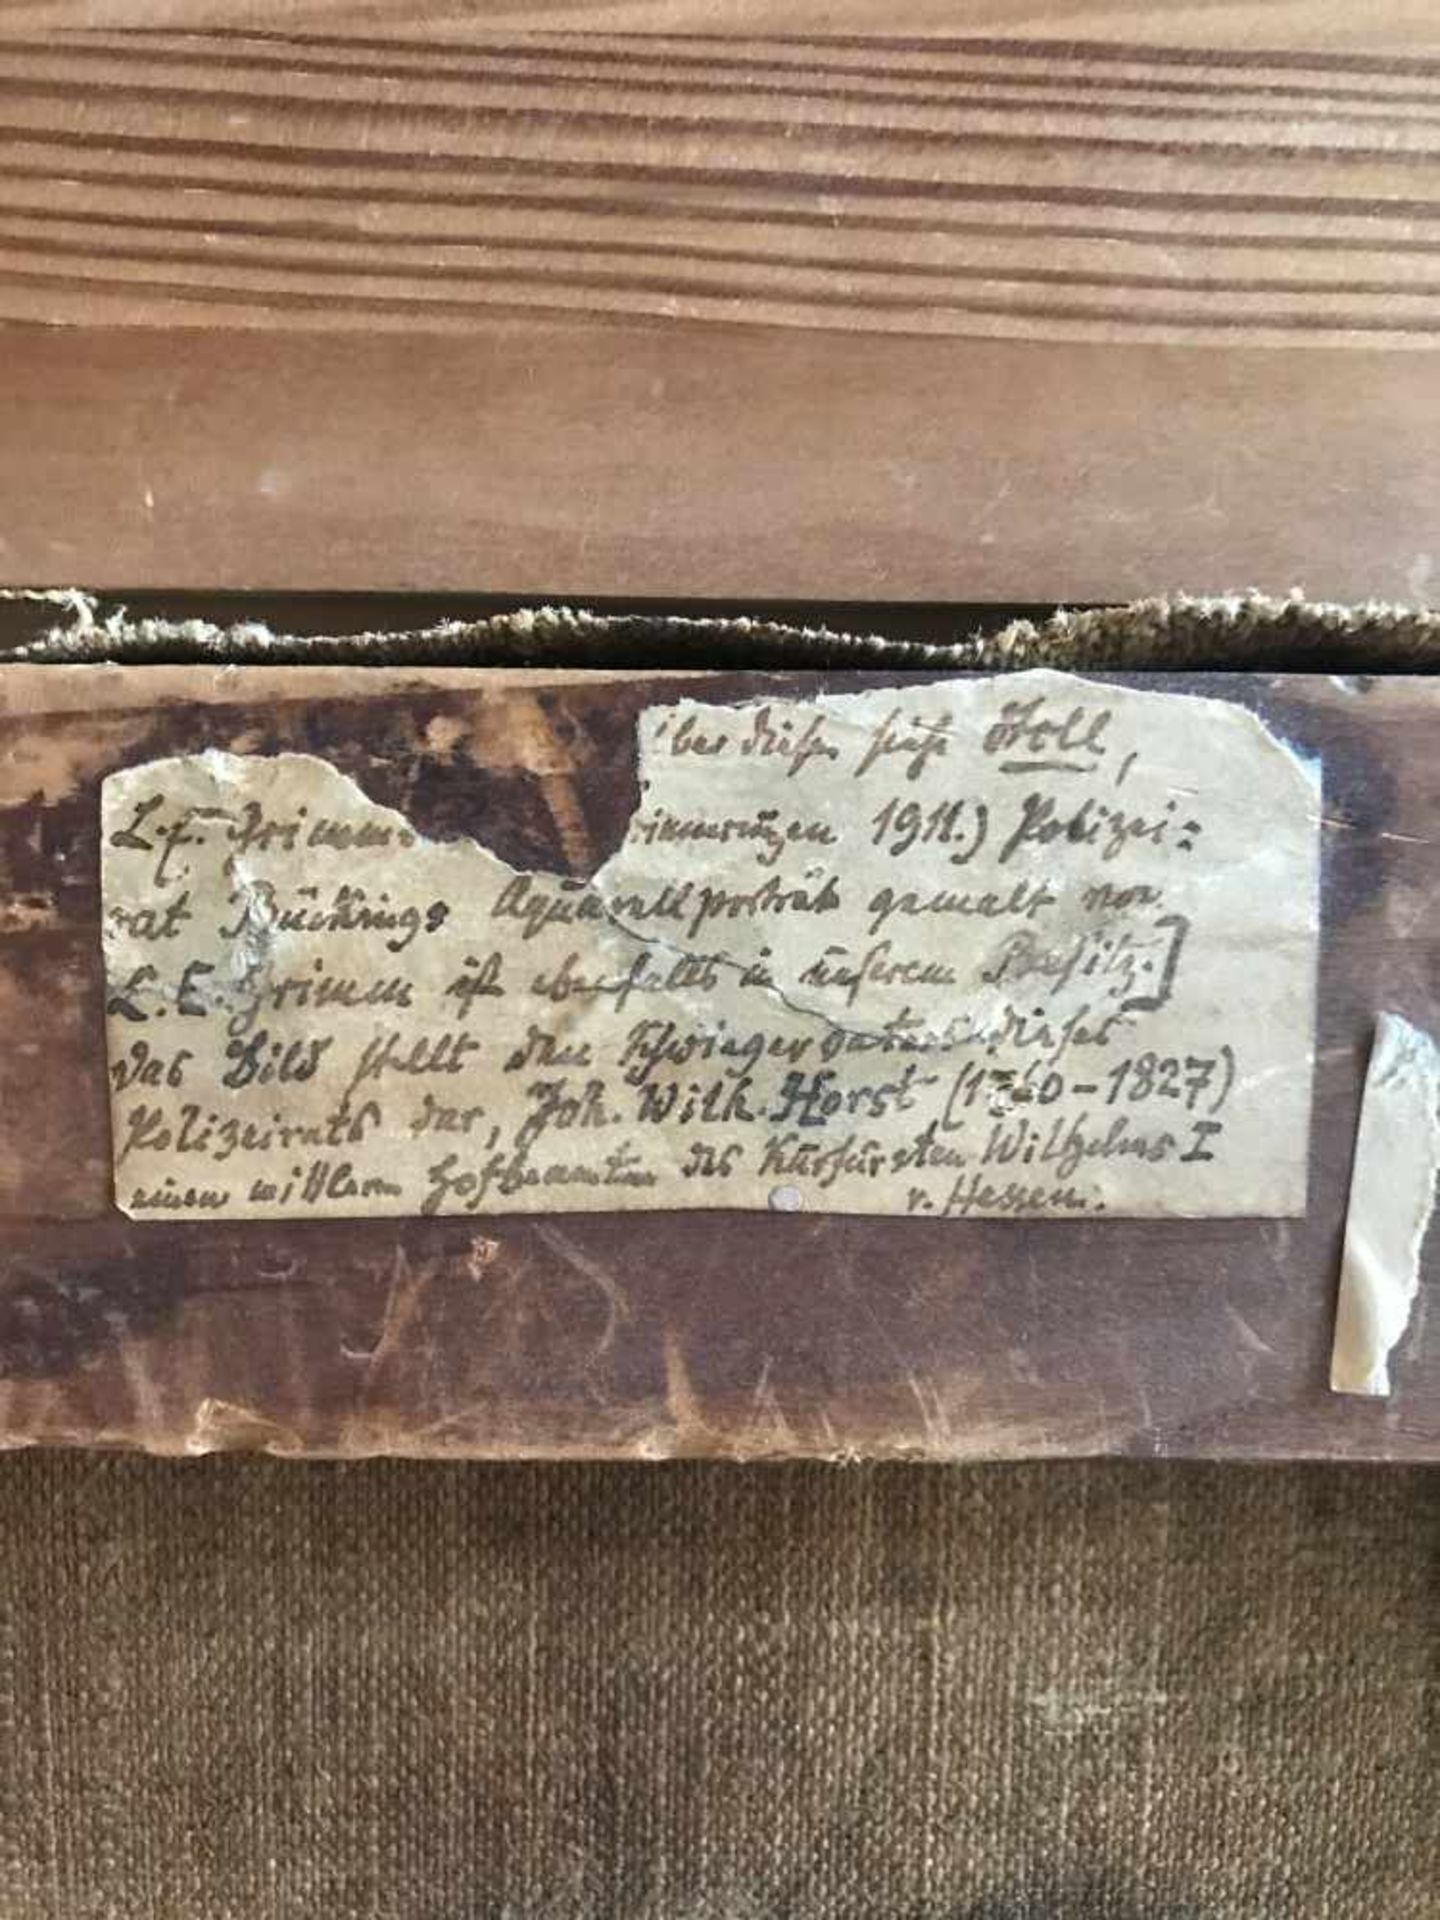 über diesen siehe Stoll,
L.E. Grimms rinnerungen 1911.) Polizei=
rat Bückings Aquarellporträt gemalt von
L.E. Grimm ist ebenfalls in unserem Besitz.]
Das Bild stellt den Schwiegervater dieses
Polizeirats dar, Joh. Wilh. Horst (1760-1827)
einen mittleren Hofbeamten des Kurfürsten Wilhelms I
v. Hessen.